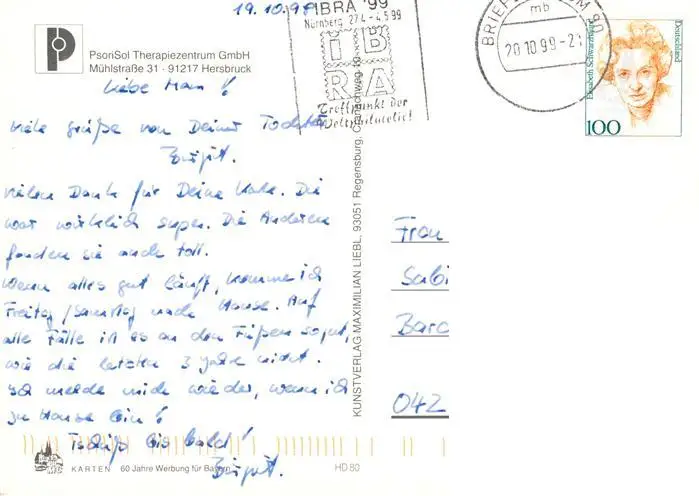 19.10.99
IBRA '99
Nürnberg 27.4.-4.5.99
IB
RA
Treffpunkt der
Weltphilatelie!
BRIEFZENTRUM 90
mb
20.10.99-21
Elisabeth Schwarzhaupt
Deutschland
100
PsoriSol Therapiezentrum GmbH
Mühlstraße 31 - 91217 Hersbruck
Liebe Mam !
viele Grüße von Deiner Tochter
Birgit.
Vielen Dank für Deine Karte. Die
war wirklich super. Die Anderen
fanden sie auch toll.
Wenn alles gut läuft, komme ich
Freitag/Samstag nach Hause. Auf
alle Fälle ist es an den Füßen so gut,
wie die letzten 3 Jahre nicht.
Ich melde mich wieder, wenn ich
zu Hause bin !
Tschüß bis bald !
Birgit.
KUNSTVERLAG MAXIMILIAN LIEBL, 93051 Regensburg, Cranachweg
Frau
Sabi
Baro
042
KARTEN 60 Jahre Werbung für Bayern HD 80